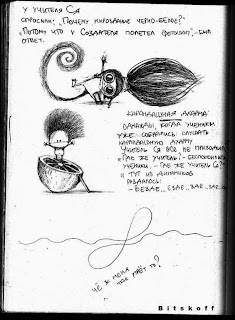 У УЧИТЕЛЯ СЯ
СПРОСИЛИ: „ПОЧЕМУ МИРОЗДАНИЕ ЧЕРНО-БЕЛОЕ?"
„ПОТОМУ ЧТО У СОЗДАТЕЛЯ ПОЛЕТЕЛ ФОТОШОП", - БЫЛ
ОТВЕТ.
КАРАНДАШНАЯ ДХАРМА:
ОДНАЖДЫ, КОГДА УЧЕНИКИ
УЖЕ СОБРАЛИСЬ СЛУШАТЬ
КАРАНДАШНУЮ ДХАРМУ
УЧИТЕЛЬ СЯ ВСЕ НЕ ПРИХОДИЛ.
„ГДЕ ЖЕ УЧИТЕЛЬ? - БЕСПОКОИЛИСЬ
УЧЕНИКИ. - ГДЕ ЖЕ УЧИТЕЛЬ СЯ?"
И ТУТ ИЗ ДИНАМИКОВ
РАЗДАЛОСЬ:
- ВЕЗДЕ... ЕЗДЕ... ЗДЕ... ЗДЕ...
ЧЁ Ж МЕНЯ
ТАК ПРЁТ ТО?
Bitskoff